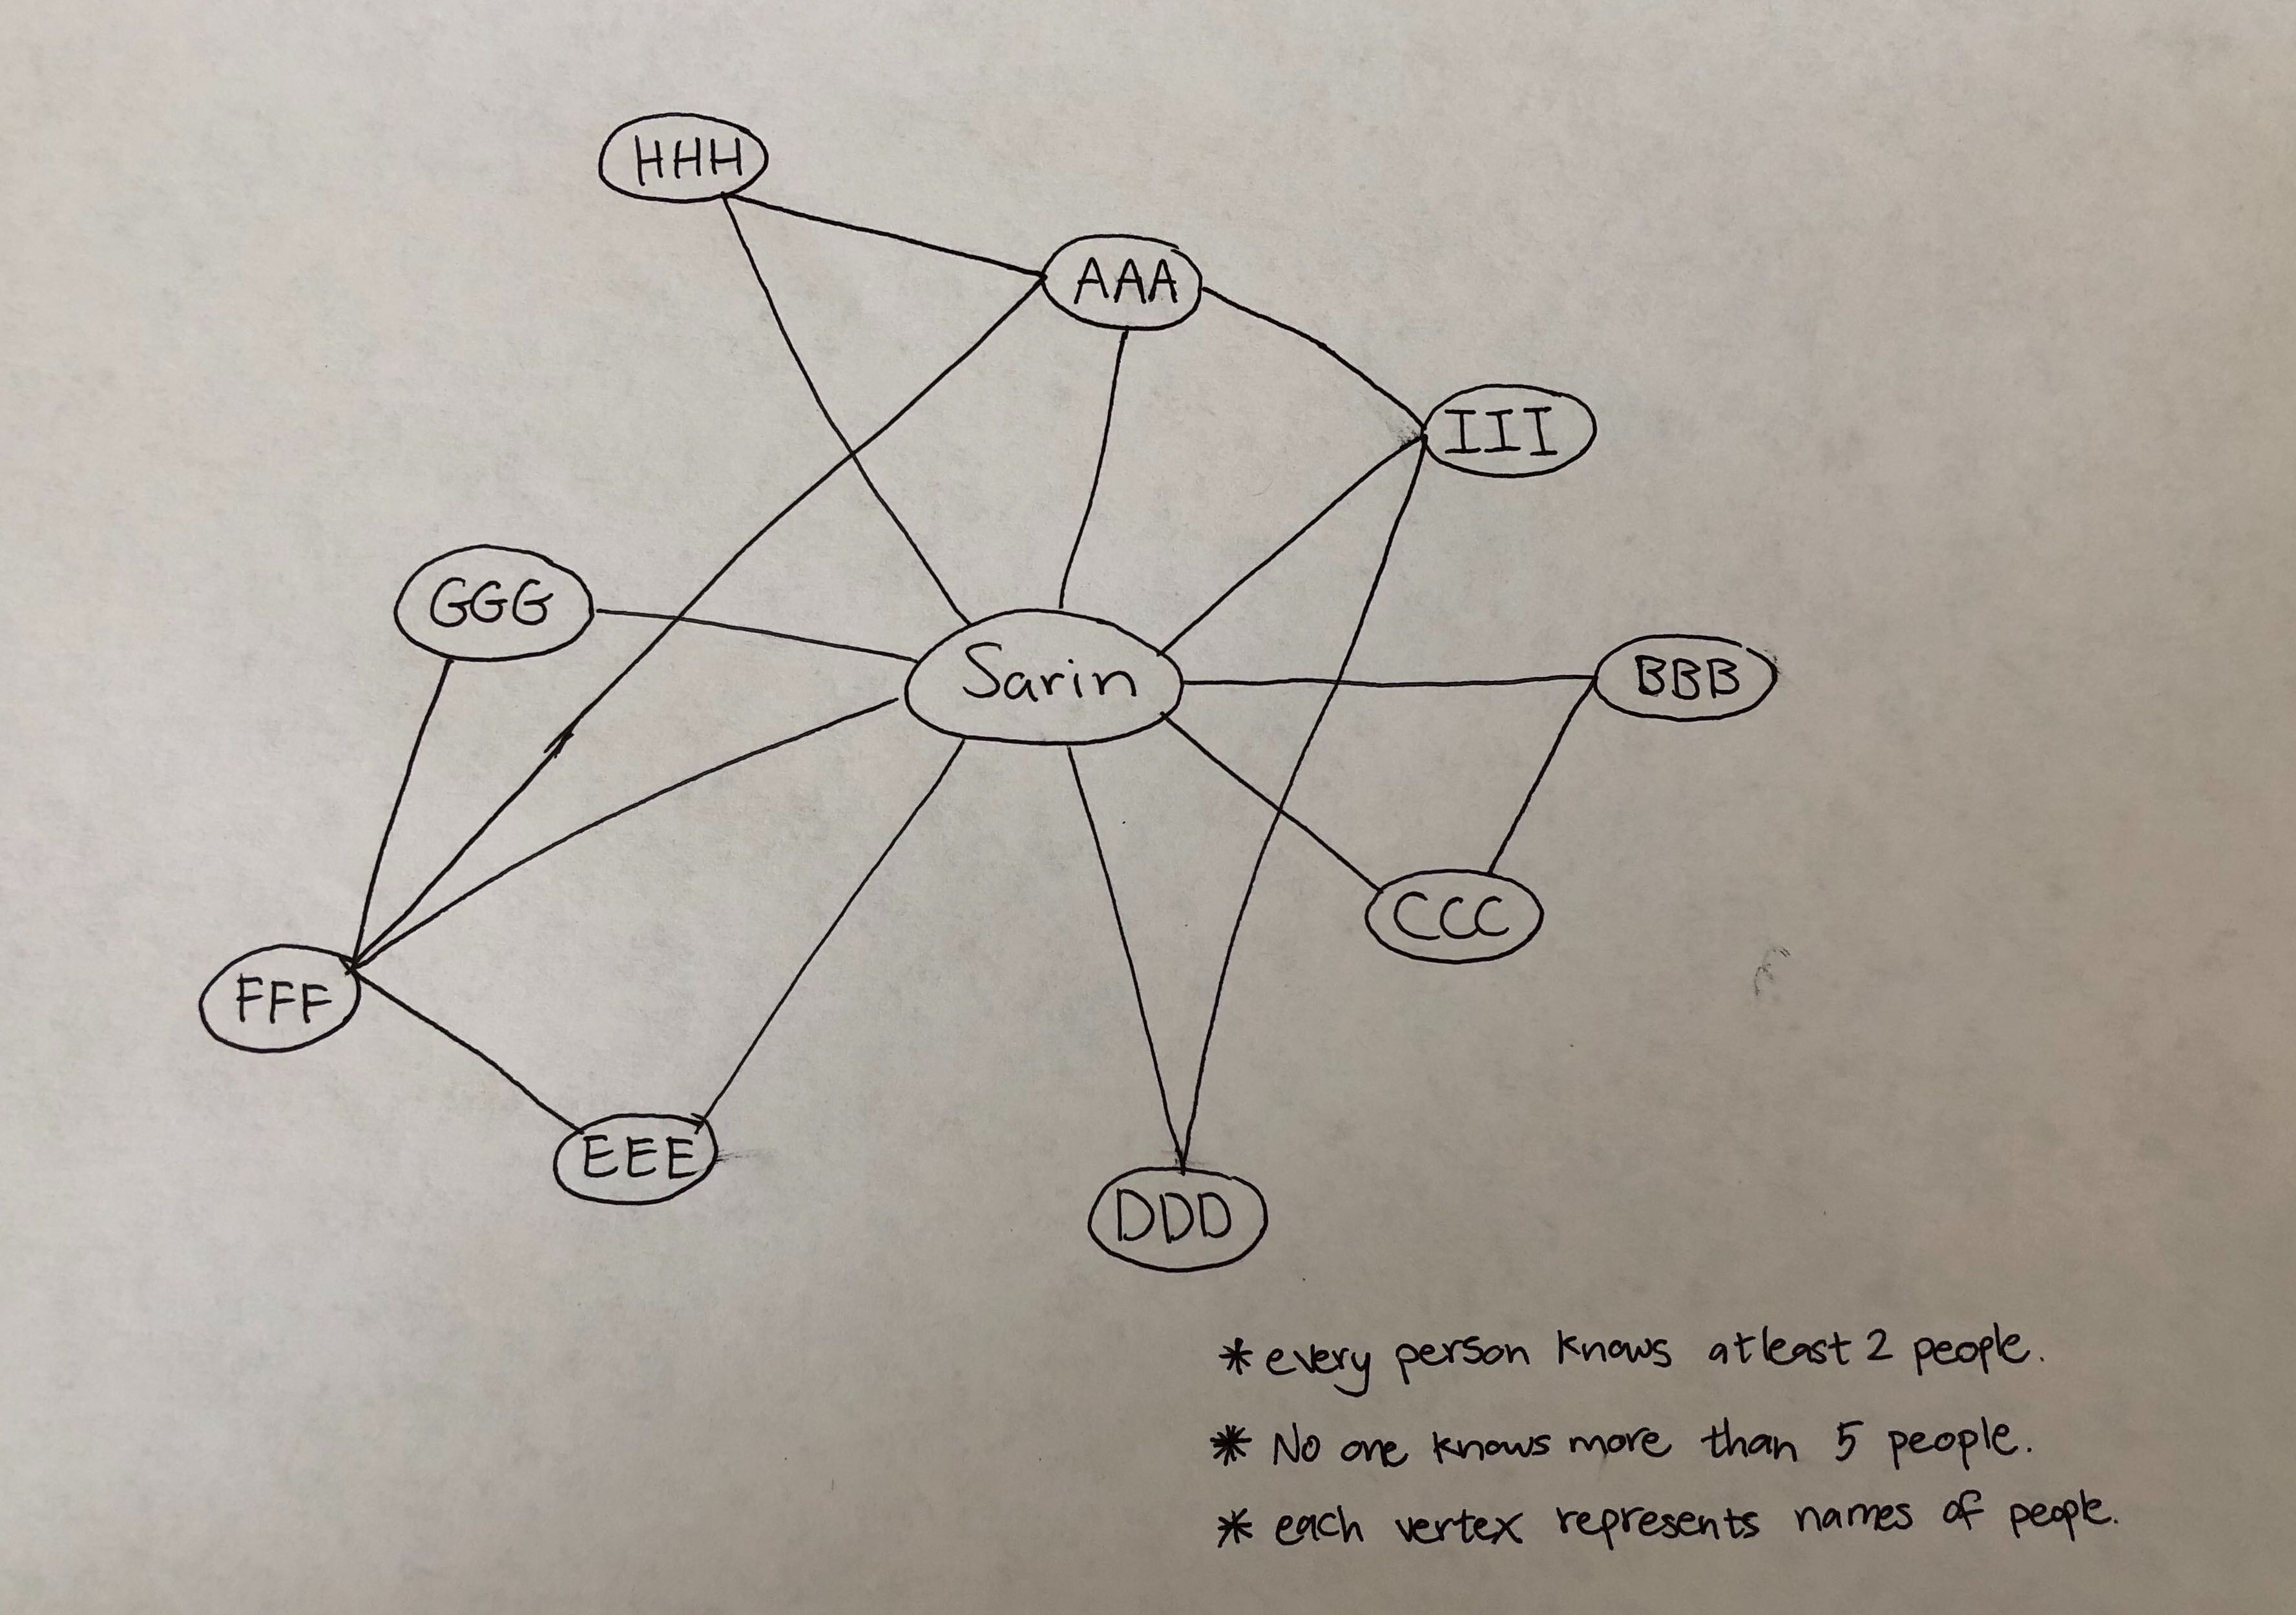 HHH
AAA
III
GGG
Sarin
BBB
CCC
FFF
EEE
DDD
* every person knows atleast 2 people.
* No one knows more than 5 people.
* each vertex represents names of people.